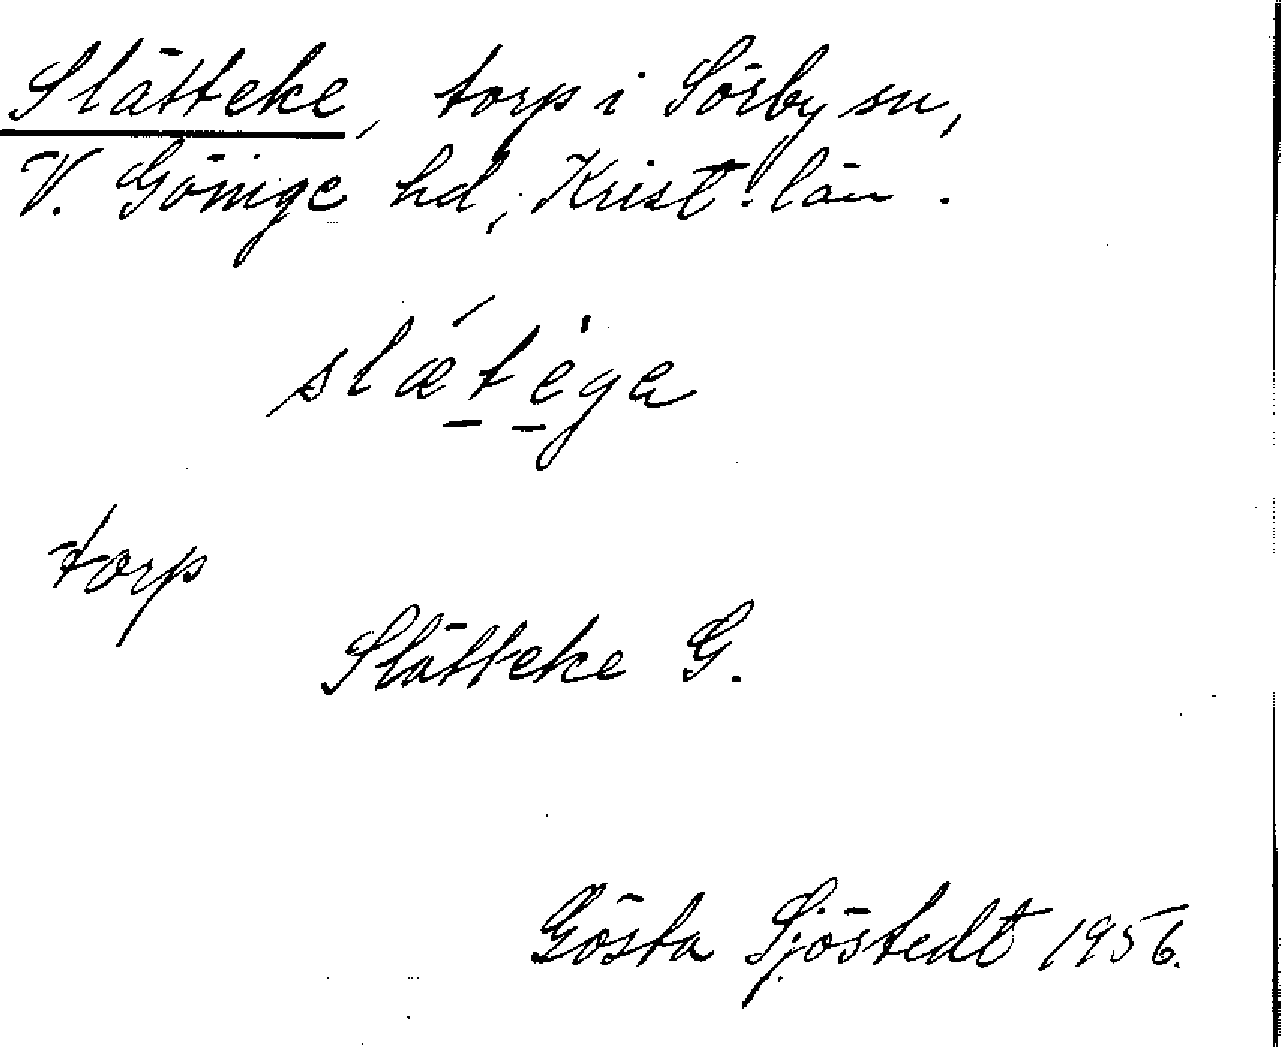 Slätteke, torp i Sörby sn,
V. Göinge hd, Krist. län.
slǽt̠e̠̍ga
torp
Slätteke G.
Gösta Sjöstedt 1956.